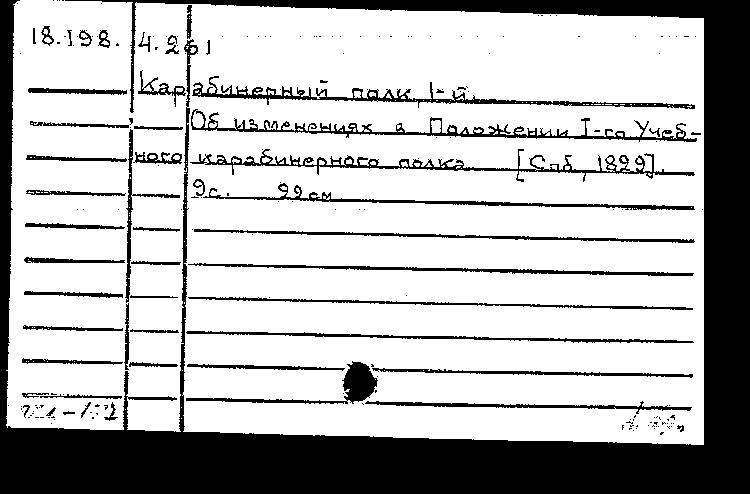 18.198. 4.261
Карабинерный полк, 1-й.
Об изменениях в Положении I-го Учеб-
ного карабинерного полка [Спб, 1829].
9с. 22см